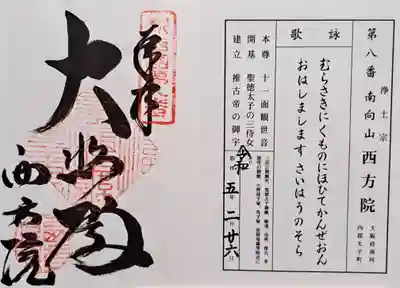 浄土宗
第八番 南向山 西方院
大阪府南河
内郡太子町
詠歌
むらさきにくものにほひてかんぜおん
おはしまします さいはうのそら
本尊 十一面観世音
開基 聖徳太子の三侍女
建立 推古帝の御宇
令和 五年 二月 廿六日
奉拝
大悲殿
西方院